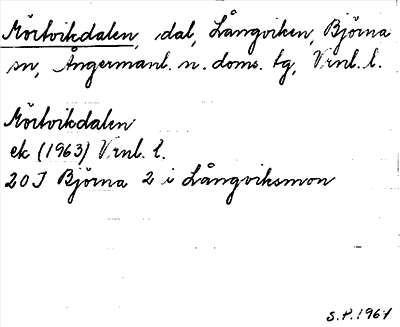 Mörtvikdalen, dal, Långviken, Björna
sn, Ångermanl. n. doms. tg, Vrnl. l.
Mörtvikdalen
ek (1963) Vrnl. l.
20J Björna 2 i Långviksmon
S.P. 1967